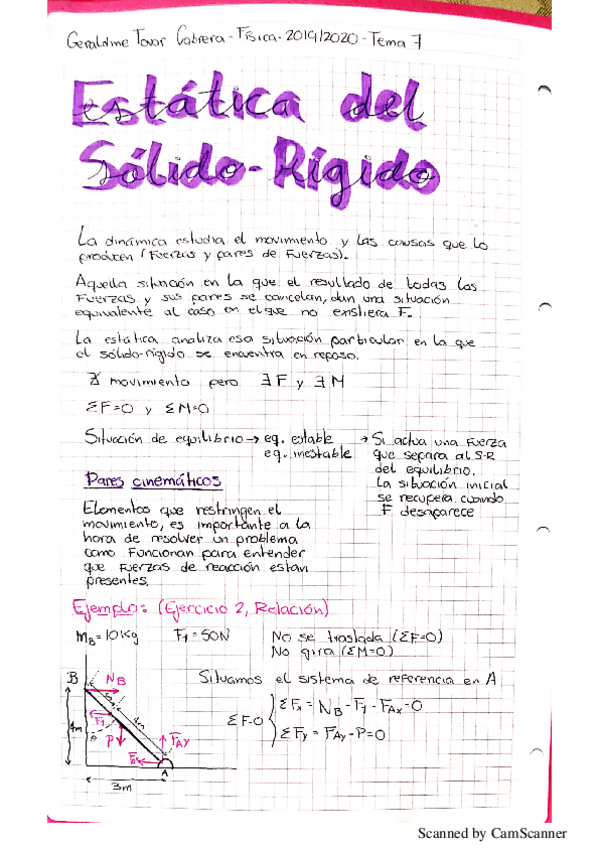 Geraldine Tovar Cabrera - Física - 2019/2020 - Tema 7
Estática del
Sólido-Rígido
La dinámica estudia el movimiento y las causas que lo
producen (Fuerzas y pares de Fuerzas).
Aquella situación en la que el resultado de todas las
Fuerzas y sus pares se cancelan, dan una situación
equivalente al caso en el que no existiera F.
La estática analiza esa situación particular en la que
el sólido-rígido se encuentra en reposo.
∄ movimiento pero ∃ F y ∃ M
ΣF=0 y ΣM=0
Situación de equilibrio → eq. estable
eq. inestable
→ Si actua una Fuerza
que separa al S-R
del equilibrio.
La situación inicial
se recupera cuando
F desaparece
Pares cinemáticos
Elementos que restringen el
movimiento, es importante a la
hora de resolver un problema
como Funcionan para entender
que Fuerzas de reacción estan
presentes.
Ejemplo: (Ejercicio 2, Relación)
m_B = 10Kg F₁ = 50N
No se traslada (ΣF=0)
No gira (ΣM=0)
Situamos el sistema de referencia en A
ΣF=0 { ΣFx = N_B - F₁ - F_Ax = 0
ΣFy = F_Ay - P = 0
B N_B
F₁
4m
P F_Ay
F_Ax
A
3m
Scanned by CamScanner